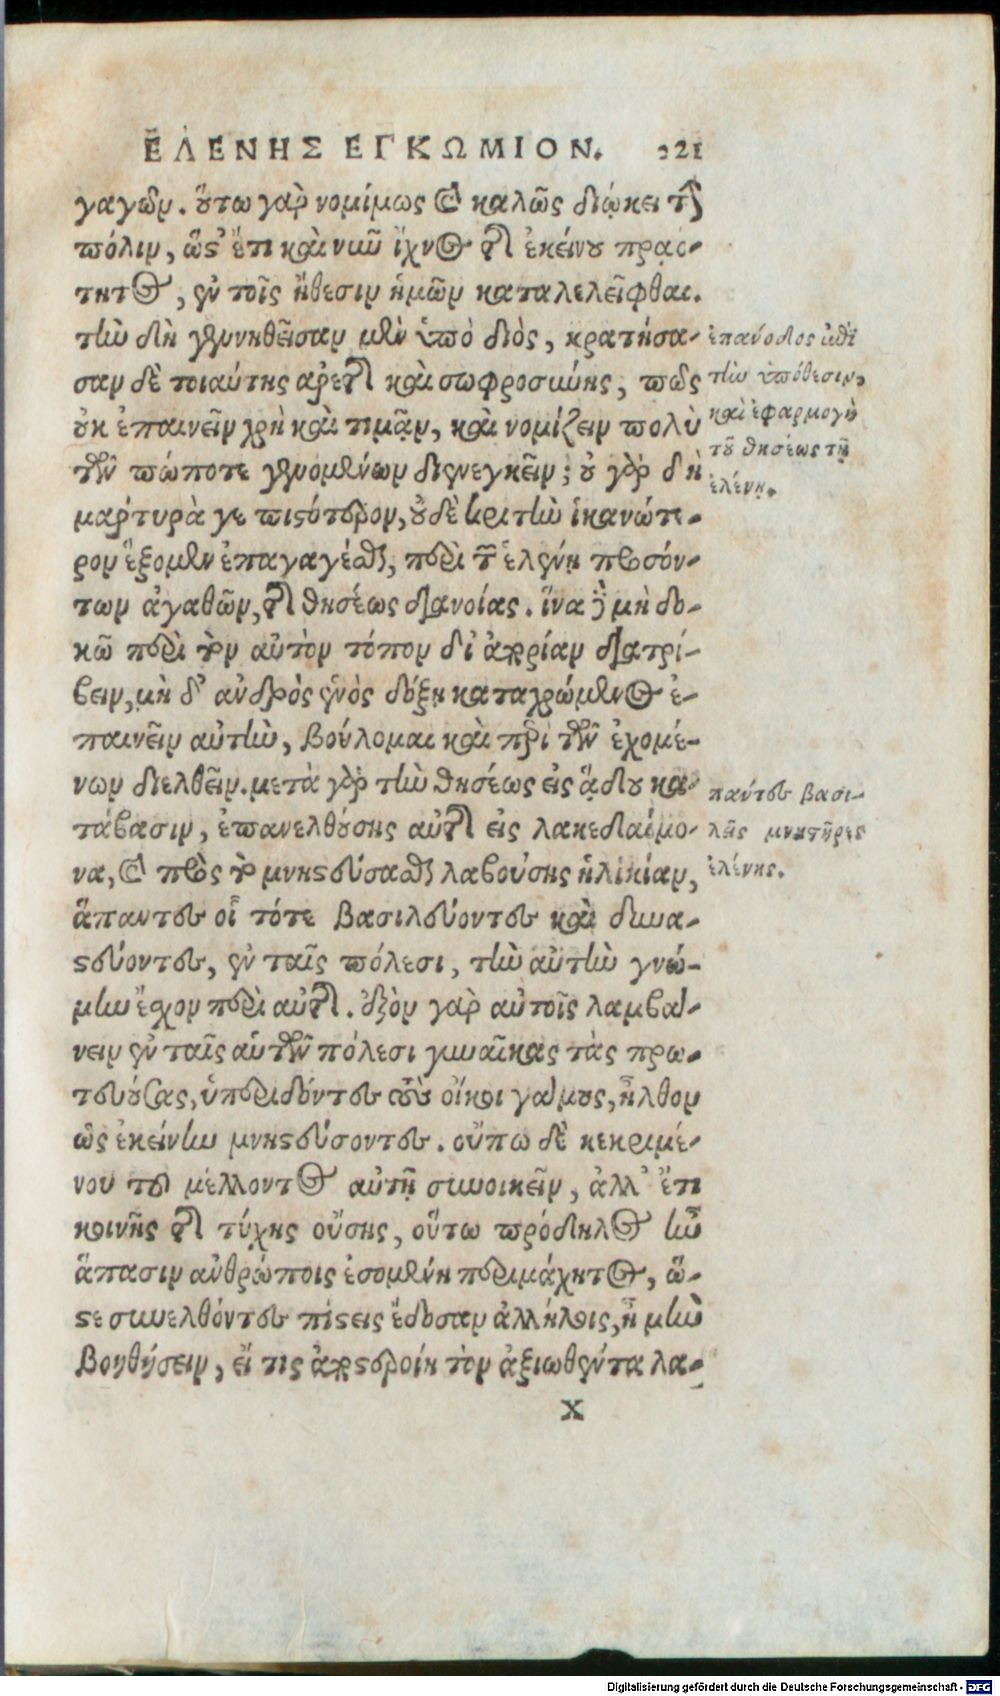 ἙΛΕΝΗΣ ΕΓΚΩΜΙΟΝ. 321
γαγών. οὕτω γὰρ νομίμως καὶ καλῶς διῴκει τὴν
πόλιν, ὥστ' ἔτι καὶ νῦν ἴχνος τῆς ἐκείνου πρᾳό-
τητος, ἐν τοῖς ἤθεσιν ἡμῶν καταλελεῖφθαι.
τὴν δὴ γεννηθεῖσαν μὲν ὑπὸ διὸς, κρατήσα-
σαν δὲ τοιαύτης ἀρετῆς καὶ σωφροσύνης, πῶς
οὐκ ἐπαινεῖν χρὴ καὶ τιμᾷν, καὶ νομίζειν πολὺ
τῶν πώποτε γενομένων διενεγκεῖν; οὐ γὰρ δὴ
μάρτυρά γε πιστότερον, οὐδὲ κριτὴν ἱκανώτε-
ρον ἕξομεν ἐπαγαγέσθαι, περὶ τῶν ἑλένῃ προσόν-
των ἀγαθῶν, τῆς θησέως διανοίας. ἵνα δὲ μὴ δο-
κῶ περὶ τὸν αὐτὸν τόπον δι' ἀπορίαν διατρί-
βειν, μὴ δ' ἀνδρὸς ἑνὸς δόξῃ καταχρώμενος ἐ-
παινεῖν αὐτὴν, βούλομαι καὶ περὶ τῶν ἐχομέ-
νων διελθεῖν. μετὰ γὰρ τὴν θησέως εἰς ᾅδου κα-
τάβασιν, ἐπανελθούσης αὐτῆς εἰς λακεδαίμο-
να, καὶ πρὸς τὸ μνηστεύσασθαι λαβούσης ἡλικίαν,
ἅπαντες οἱ τότε βασιλεύοντες καὶ δυνα-
στεύοντες, ἐν ταῖς πόλεσι, τὴν αὐτὴν γνώ-
μην ἔσχον περὶ αὐτῆς. ἐξὸν γὰρ αὐτοῖς λαμβά-
νειν ἐν ταῖς αὑτῶν πόλεσι γυναῖκας τὰς πρω-
τευούσας, ὑπεριδόντες τοὺς οἴκοι γάμους, ἦλθον
ὡς ἐκείνην μνηστεύσοντες. οὔπω δὲ κεκριμέ-
νου τοῦ μέλλοντος αὐτῇ συνοικεῖν, ἀλλ' ἔτι
κοινῆς τῆς τύχης οὔσης, οὕτω πρόδηλος ἦν
ἅπασιν ἀνθρώποις ἐσομένη περιμάχητος, ὥ-
στε συνελθόντες πίστεις ἔδοσαν ἀλλήλοις, ἦ μὴν
βοηθήσειν, εἴ τις ἀποστεροίη τὸν ἀξιωθέντα λα-
Χ
ἐπάνοδος ἐπὶ
τὴν ὑπόθεσιν,
καὶ ἐφαρμογὴ
τοῦ θησέως τῇ
ἑλένῃ.
πάντες βασι-
λῆς μνηστῆρες
ἑλένης.
Digitalisierung gefördert durch die Deutsche Forschungsgemeinschaft - DFG